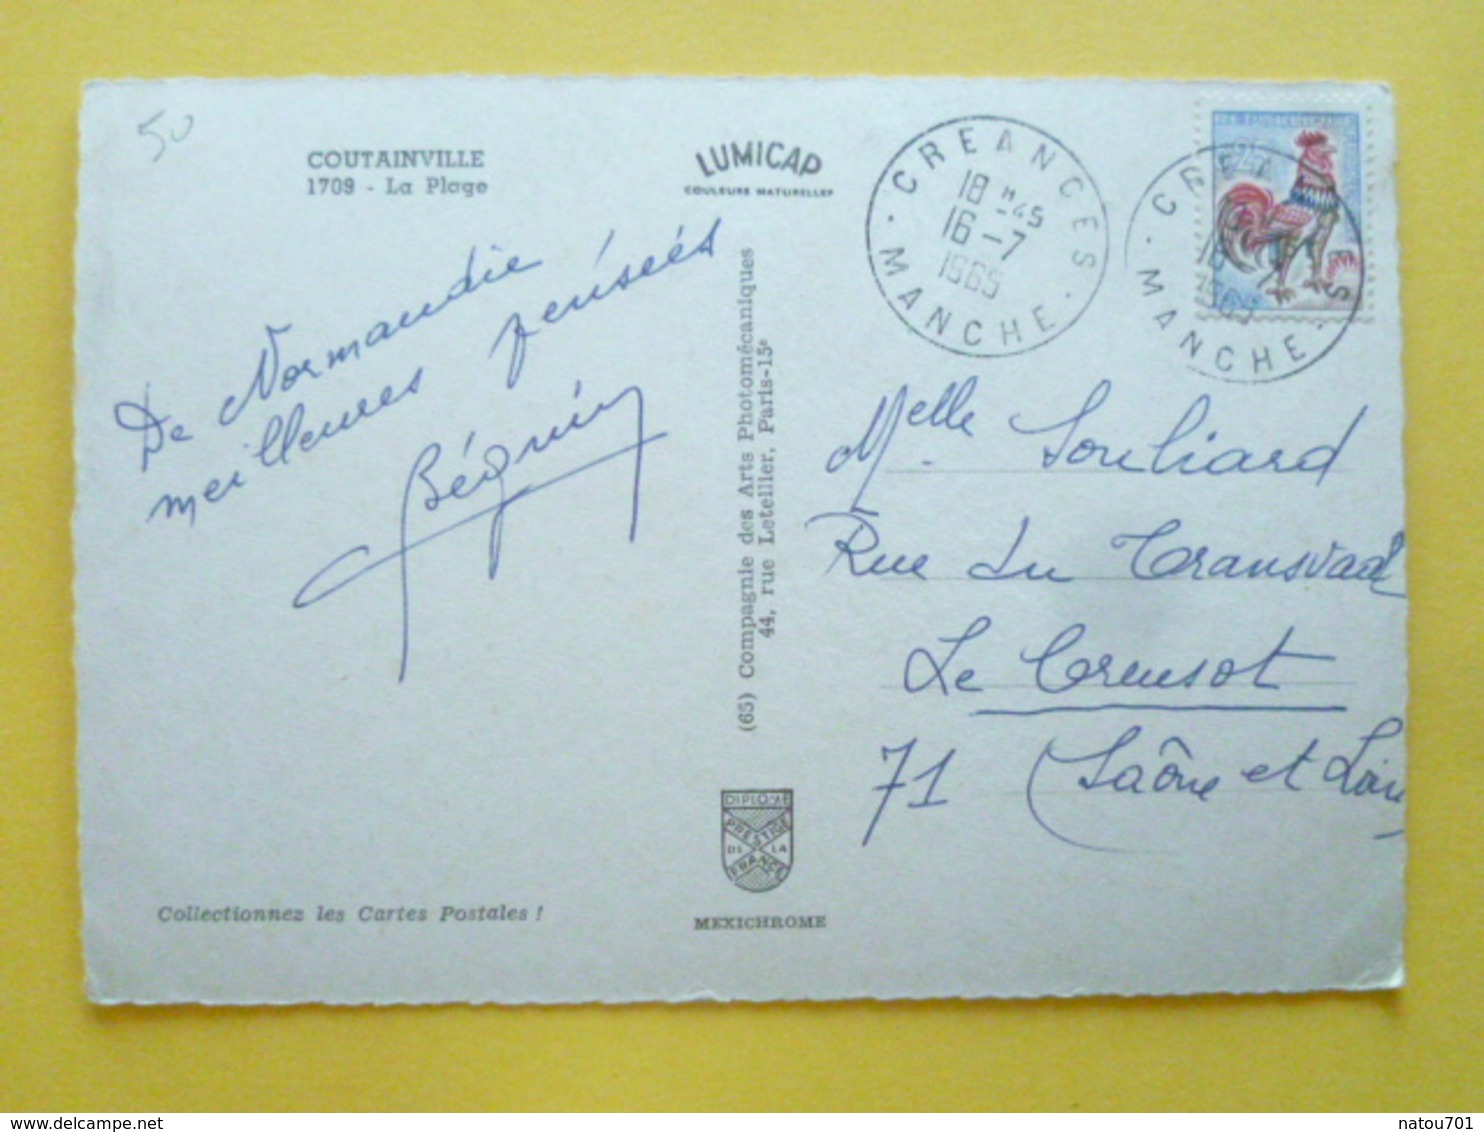 50
COUTAINVILLE
1709 - La Plage
LUMICAP
COULEURS NATURELLES
De Normandie
meilleures pensées
Béguin
(65) Compagnie des Arts Photomécaniques
44, rue Letellier, Paris-15e
DIPLOME
PRESTIGE
DE LA
FRANCE
MEXICHROME
Collectionnez les Cartes Postales !
CREANCES
18 H -45
16 - 7
1965
MANCHE
CREANCES
MANCHE
Melle Souliard
Rue du Transvaal
Le Creusot
71 (Saône et Loire)
natou701